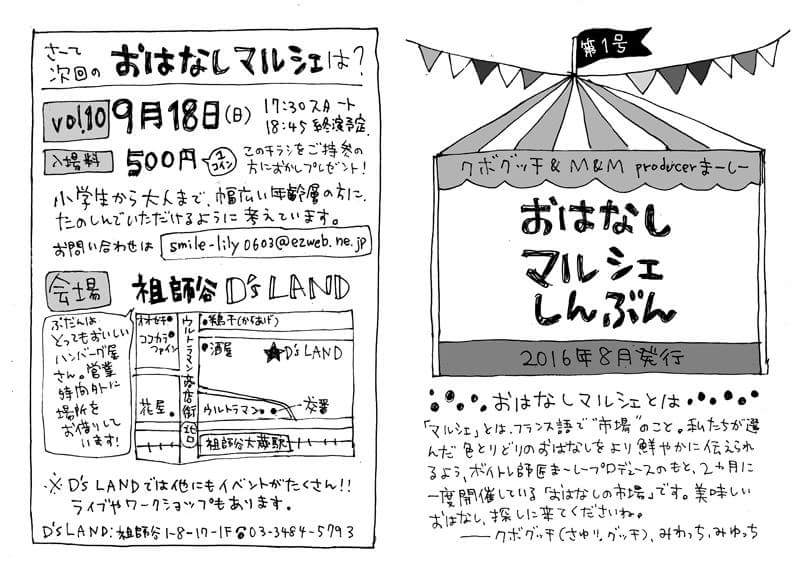 さーて
次回の おはなしマルシェは？
vol.10 9月18日(日) 17:30スタート
18:45終演予定.
入場料 500円 1コイン このチラシをご持参の
方におかしプレゼント！
小学生から大人まで、幅広い年齢層の方に、
たのしんでいただけるように考えています。
お問い合わせは smile-lily0603@ezweb.ne.jp
会場 祖師谷 D's LAND
ふだんは
とってもおいしい
ハンバーグ屋
さん。営業
時間外に
場所を
お借りして
います！
オオゼキ
ココカラ
ファイン
花屋
ウルトラマン商店街 北口
(からあげ)
酒屋
D's LAND
ウルトラマン
交番
祖師谷大蔵駅
※ D's LANDでは他にもイベントがたくさん!!
ライブやワークショップもあります。
D's LAND:祖師谷1-8-17-1F ☎03-3484-5793
第1号
クボグッチ & M&M producerまーしー
おはなし
マルシェ
しんぶん
2016年8月発行
おはなしマルシェとは
「マルシェ」とは、フランス語で"市場"のこと。私たちが選
んだ色とりどりのおはなしをより鮮やかに伝えられ
るよう、ボイトレ師匠まーしープロデュースのもと、2ヵ月に
一度開催している「おはなしの市場」です。美味しい
おはなし、探しに来てくださいね。
——クボグッチ(さゆり、グッチ)、みわっち、みゆっち